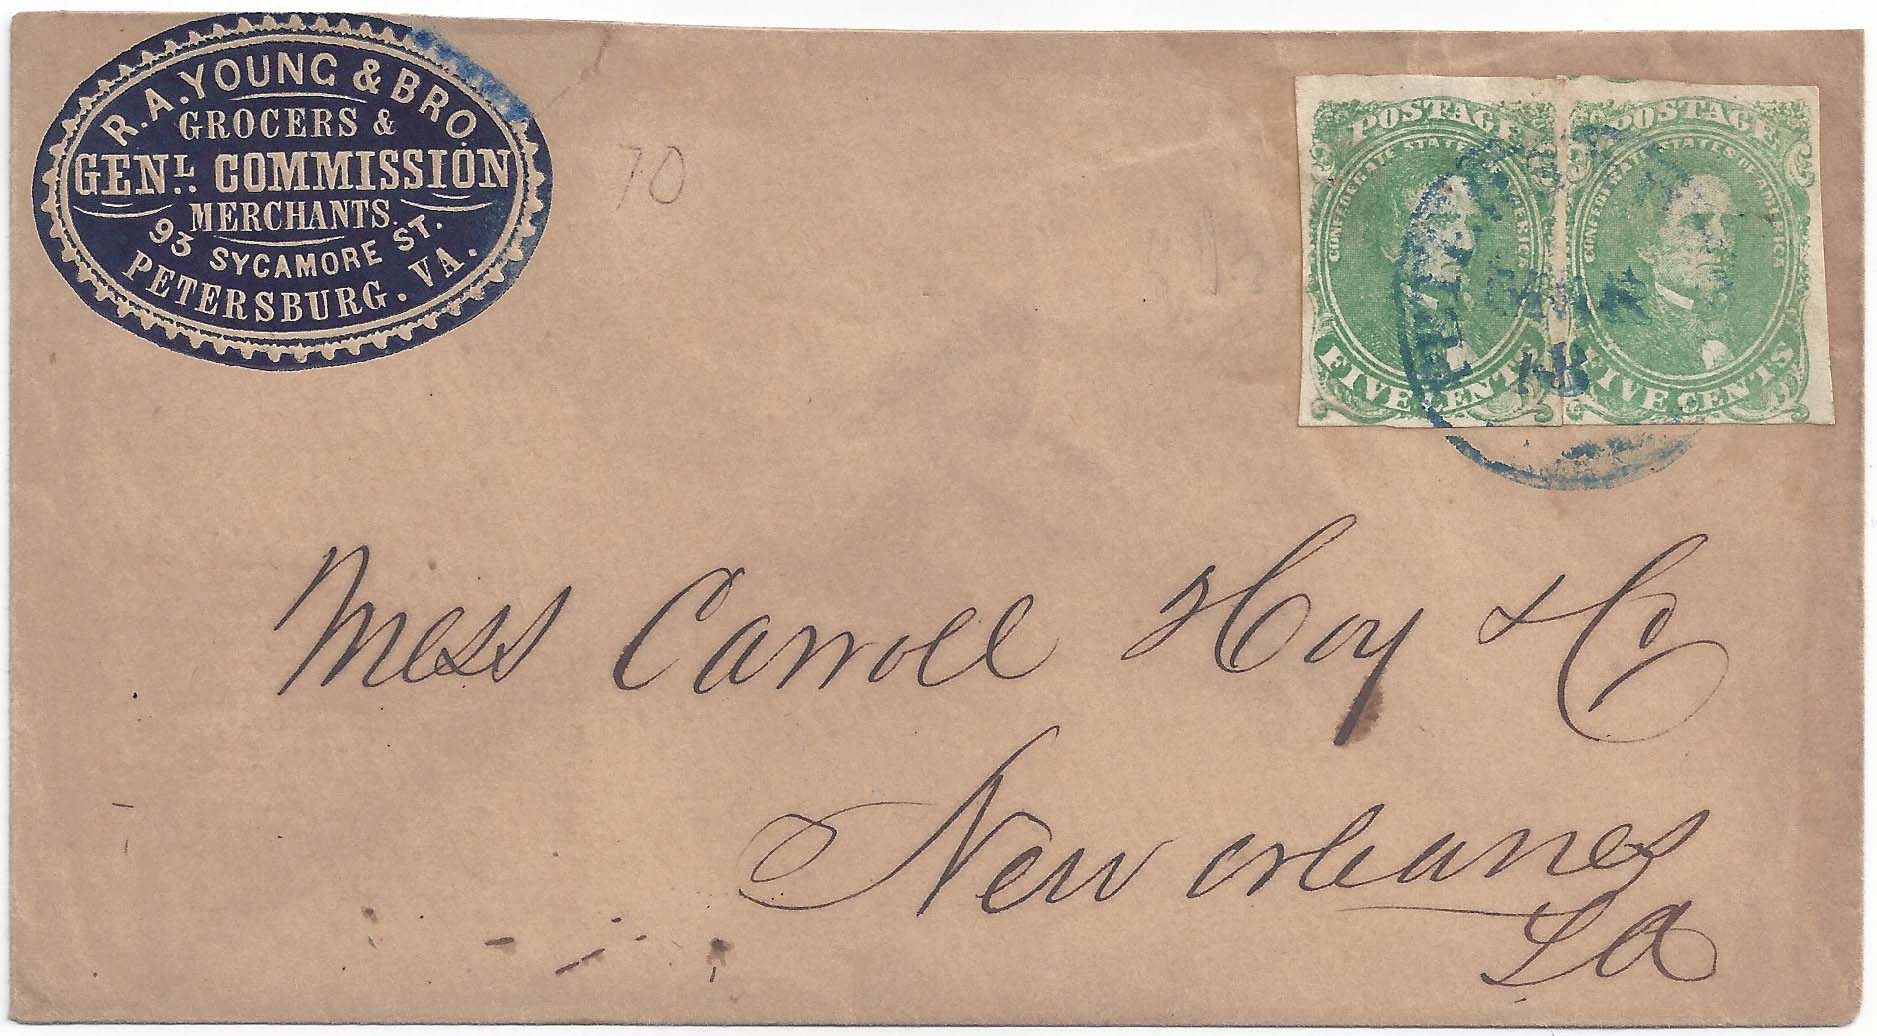 R. A. YOUNG & BRO.
GROCERS &
GENL. COMMISSION
MERCHANTS.
93 SYCAMORE ST.
PETERSBURG. VA.
70
POSTAGE
CONFEDERATE STATES AMERICA
FIVE CENTS
POSTAGE
CONFEDERATE STATES OF AMERICA
FIVE CENTS
Mess Carroll Hoy & Co
New Orleans
La